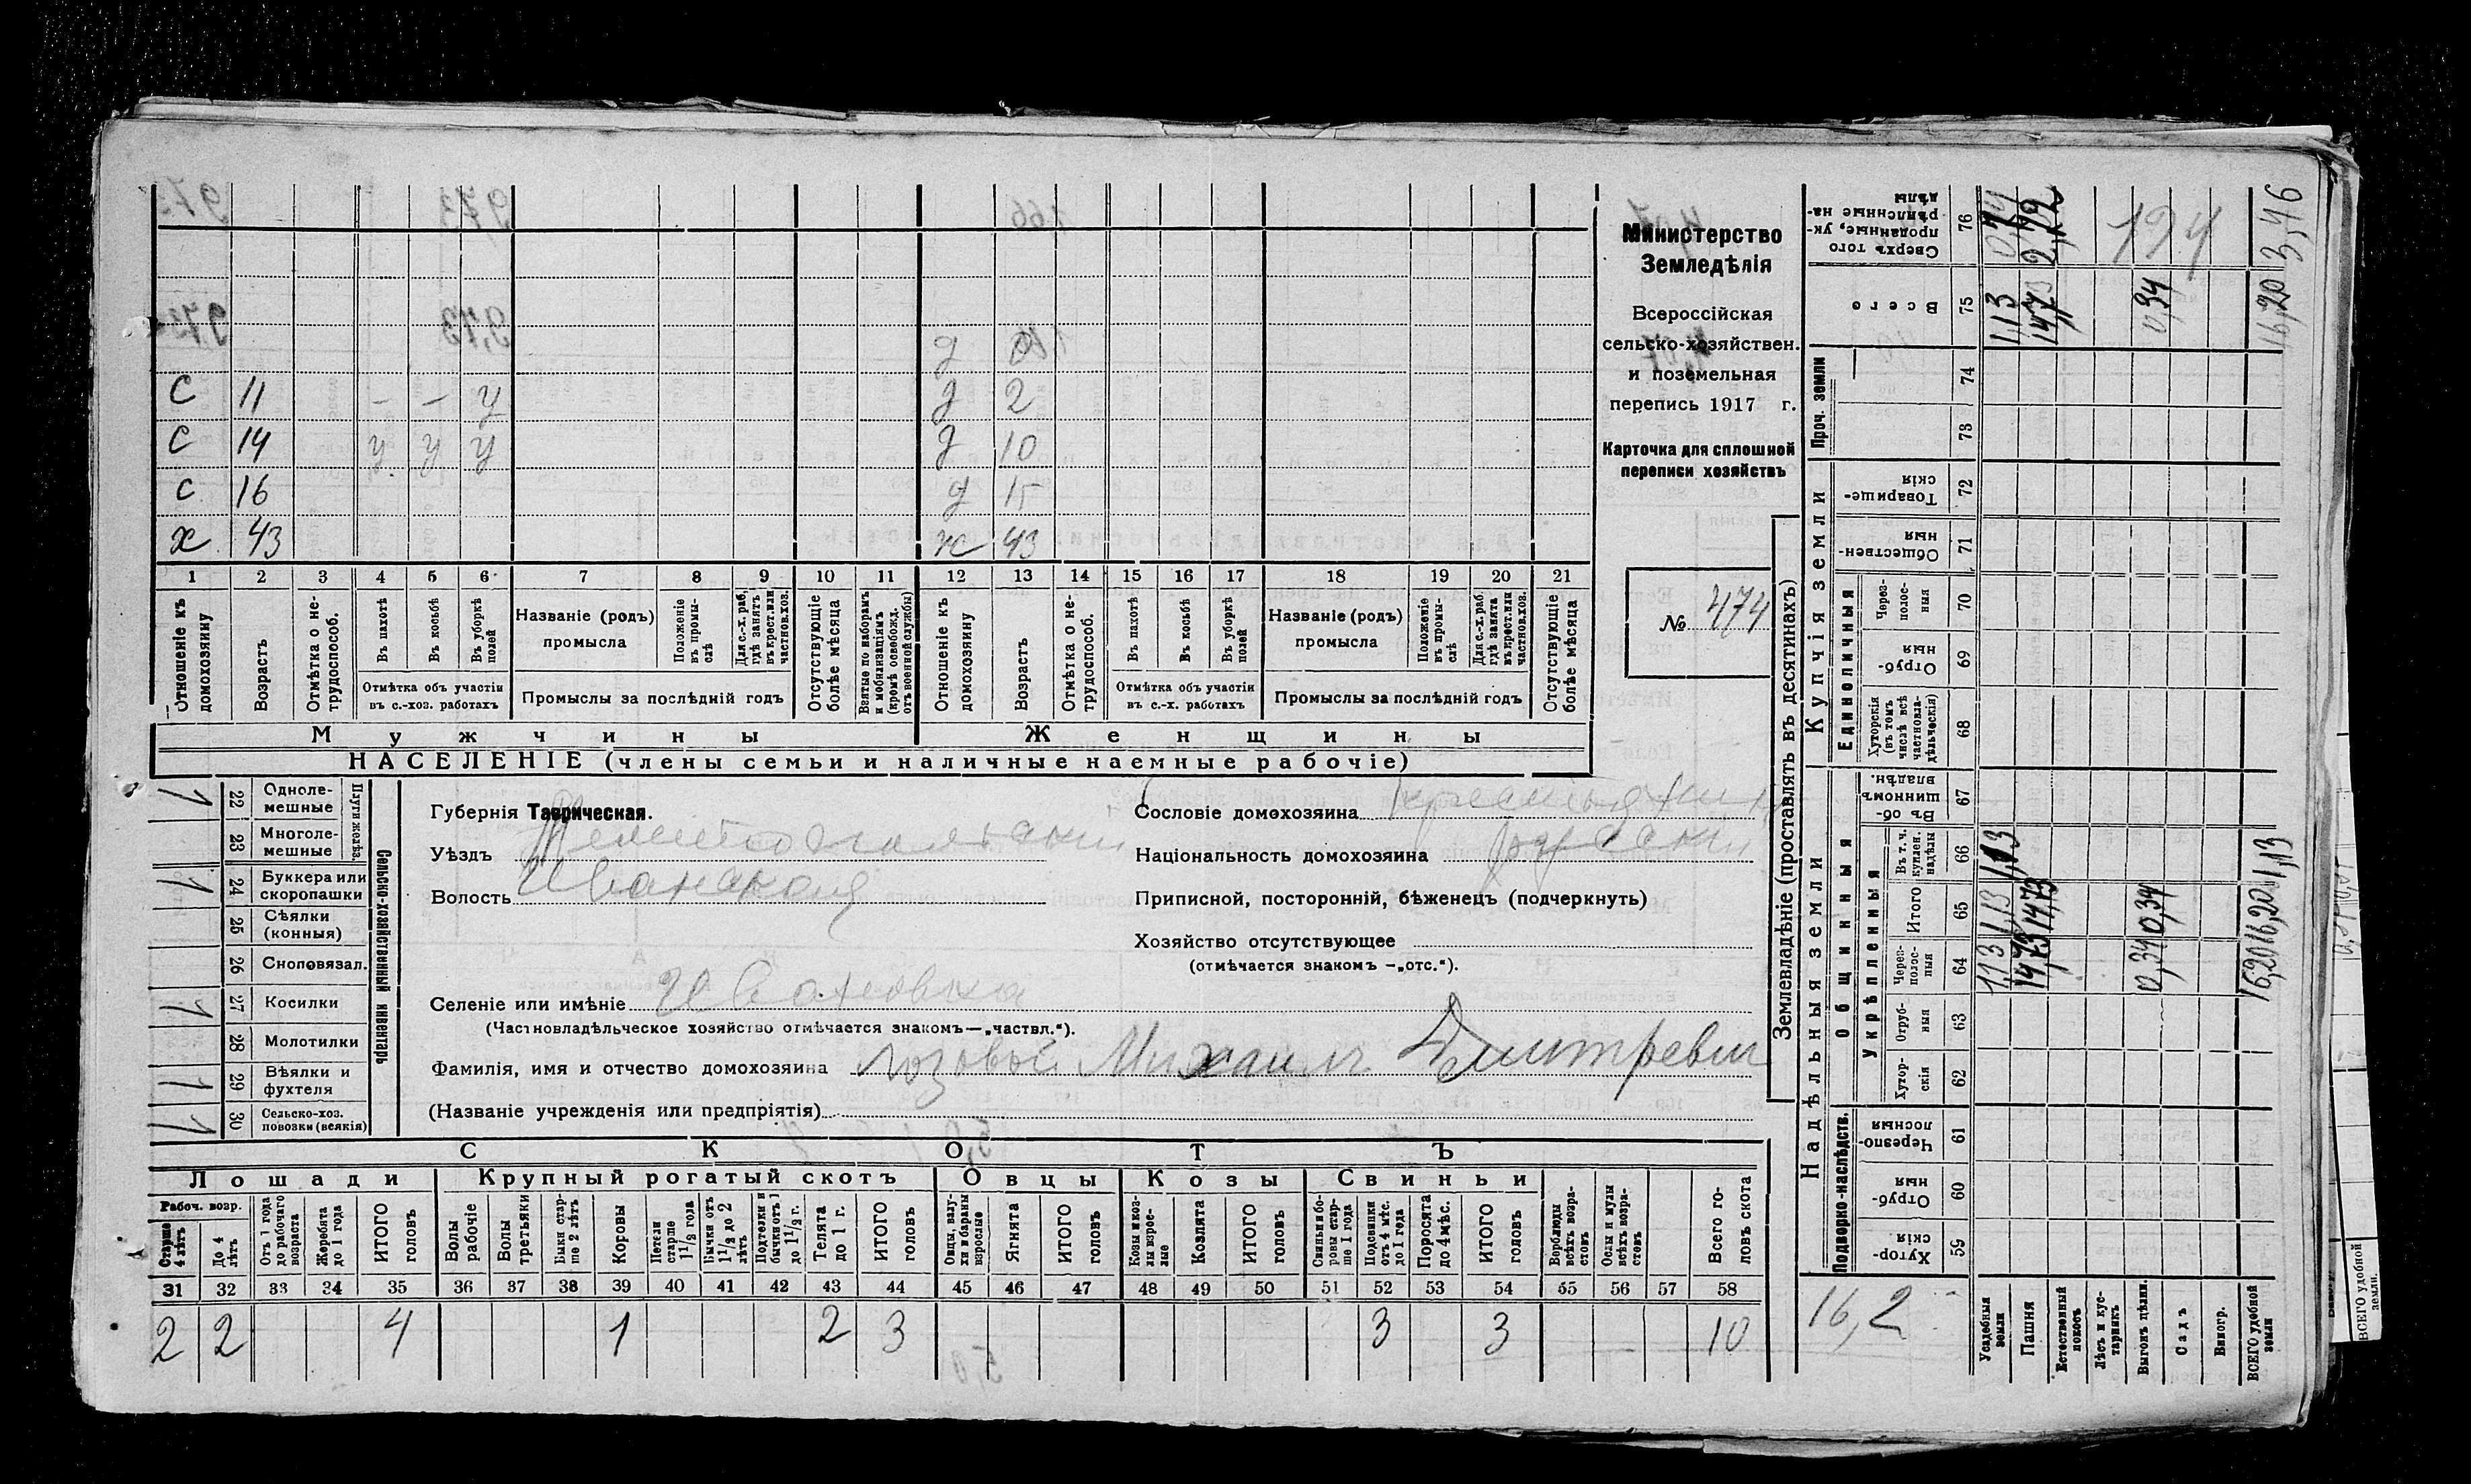 С 11 – – у
С 14 у у у
С 16
х 43
д 0
д 2
д 10
д 15
ж 43
1 2 3 4 5 6 7 8 9 10 11 12 13 14 15 16 17 18 19 20 21
Отношеніе къ домохозяину
Возрастъ
Отмѣтка о нетрудоспособ.
Въ пахотѣ
Въ косьбѣ
Въ уборкѣ полей
Отмѣтка объ участіи въ с.-хоз. работахъ
Названіе (родъ) промысла
Положеніе въ промы-слѣ
Для с.-х. раб. гдѣ занятъ въ крест. или частнов. хоз.
Промыслы за послѣдній годъ
Отсутствующіе болѣе мѣсяца
Взятые по наборамъ и мобилизаціямъ (кромѣ освобожд. отъ военной службы)
Отношеніе къ домохозяину
Возрастъ
Отмѣтка о нетрудоспособ.
Въ пахотѣ
Въ косьбѣ
Въ уборкѣ полей
Отмѣтка объ участіи въ с.-х. работахъ
Названіе (родъ) промысла
Положеніе въ промы-слѣ
Для с.-х. раб. гдѣ занята въ крест. или частнов. хоз.
Промыслы за послѣдній годъ
Отсутствующіе болѣе мѣсяца
Мужчины
Женщины
НАСЕЛЕНІЕ (члены семьи и наличные наемные рабочіе)
Министерство
Земледѣлія
Всероссійская
сельско-хозяйствен.
и поземельная
перепись 1917 г.
Карточка для сплошной
переписи хозяйствъ
№ 474
1 22 Однолемешные
23 Многолемешные
Плуги желѣз.
1 24 Буккера или скоропашки
25 Сѣялки (конныя)
26 Сноповязал.
1 27 Косилки
28 Молотилки
1 29 Вѣялки и фухтеля
1 30 Сельско-хоз. повозки (всякія)
Сельско-хозяйственный инвентарь
Губернія Таврическая.
Уѣздъ
Волость
Селеніе или имѣніе Ивановка
(Частновладѣльческое хозяйство отмѣчается знакомъ—„частвл.“).
Фамилія, имя и отчество домохозяина Лозовой Михаилъ Дмитревич
(Названіе учрежденія или предпріятія)
Сословіе домохозяина
Національность домохозяина
Приписной, посторонній, бѣженецъ (подчеркнуть)
Хозяйство отсутствующее
(отмѣчается знакомъ —„отс.“).
СКОТЪ
Лошади Крупный рогатый скотъ Овцы Козы Свиньи
Рабоч. возр.
Старше 4 лѣтъ
До 4 лѣтъ
Отъ 1 года до рабочаго возраста
Жеребята до 1 года
ИТОГО головъ
Волы рабочіе
Волы третьяки
Быки старше 2 лѣтъ
Коровы
Нетели старше 1 1/2 года
Бычки отъ 1 1/2 до 2 лѣтъ
Подтелки и бычки отъ 1 до 1 1/2 г.
Телята до 1 г.
ИТОГО головъ
Овцы, валухи и бараны взрослые
Ягнята
ИТОГО головъ
Козы и козлы взрослые
Козлята
ИТОГО головъ
Свиньи и боровы старше 1 года
Подсвинки отъ 4 мѣс. до 1 года
Поросята до 4 мѣс.
ИТОГО головъ
Верблюды всѣхъ возрастовъ
Ослы и мулы всѣхъ возрастовъ
Всего головъ скота
31 32 33 34 35 36 37 38 39 40 41 42 43 44 45 46 47 48 49 50 51 52 53 54 55 56 57 58
2 2 4 1 2 3 3 3 10
Землевладѣніе (проставлять въ десятинахъ)
Надѣльныя земли
Подворно-наслѣдств.
Хуторскія 59
Отрубныя 60
Черезполосныя 61
Общинныя
Укрѣпленныя
Хуторскія 62
Отрубныя 63
Черезполосныя 64
Итого 65
Въ т. ч. куплен. надѣлы 66
Въ общинномъ владѣн. 67
Купчія земли
Единоличныя
Хуторскія (въ томъ числѣ всѣ частновладѣльческія) 68
Отрубныя 69
Черезполосныя 70
Общественныя 71
Товарищескія 72
Проч. земли
73
74
Всего 75
Сверхъ того проданные, укрѣпленные надѣлы 76
16,2
Усадебныя земли 1,13 1,13 1,13 113
Пашня 14,73 14,73 2,72
Естественный покосъ
Лѣсъ и кустарникъ
Выгонъ цѣлин. 0,34 0,34 0,34
Садъ
Виногр.
ВСЕГО удобной земли 16,20 16,20 1,13 16,20 3,46
194
ВСЕГО удобной земли.